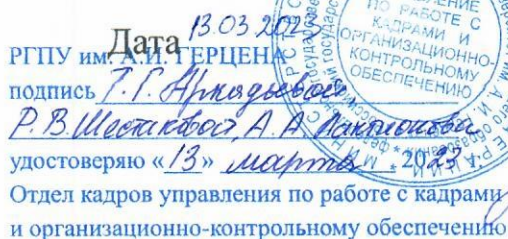 Дата 13.03.2023
РГПУ им. А.И. ГЕРЦЕНА
подпись Т. Г. Аркадьевой
Р. В. Шестаковой, А. А.
удостоверяю «13» марта 2023 г.
Отдел кадров управления по работе с кадрами
и организационно-контрольному обеспечению
ПО РАБОТЕ С
КАДРАМИ И
ОРГАНИЗАЦИОННО-
КОНТРОЛЬНОМУ
ОБЕСПЕЧЕНИЮ